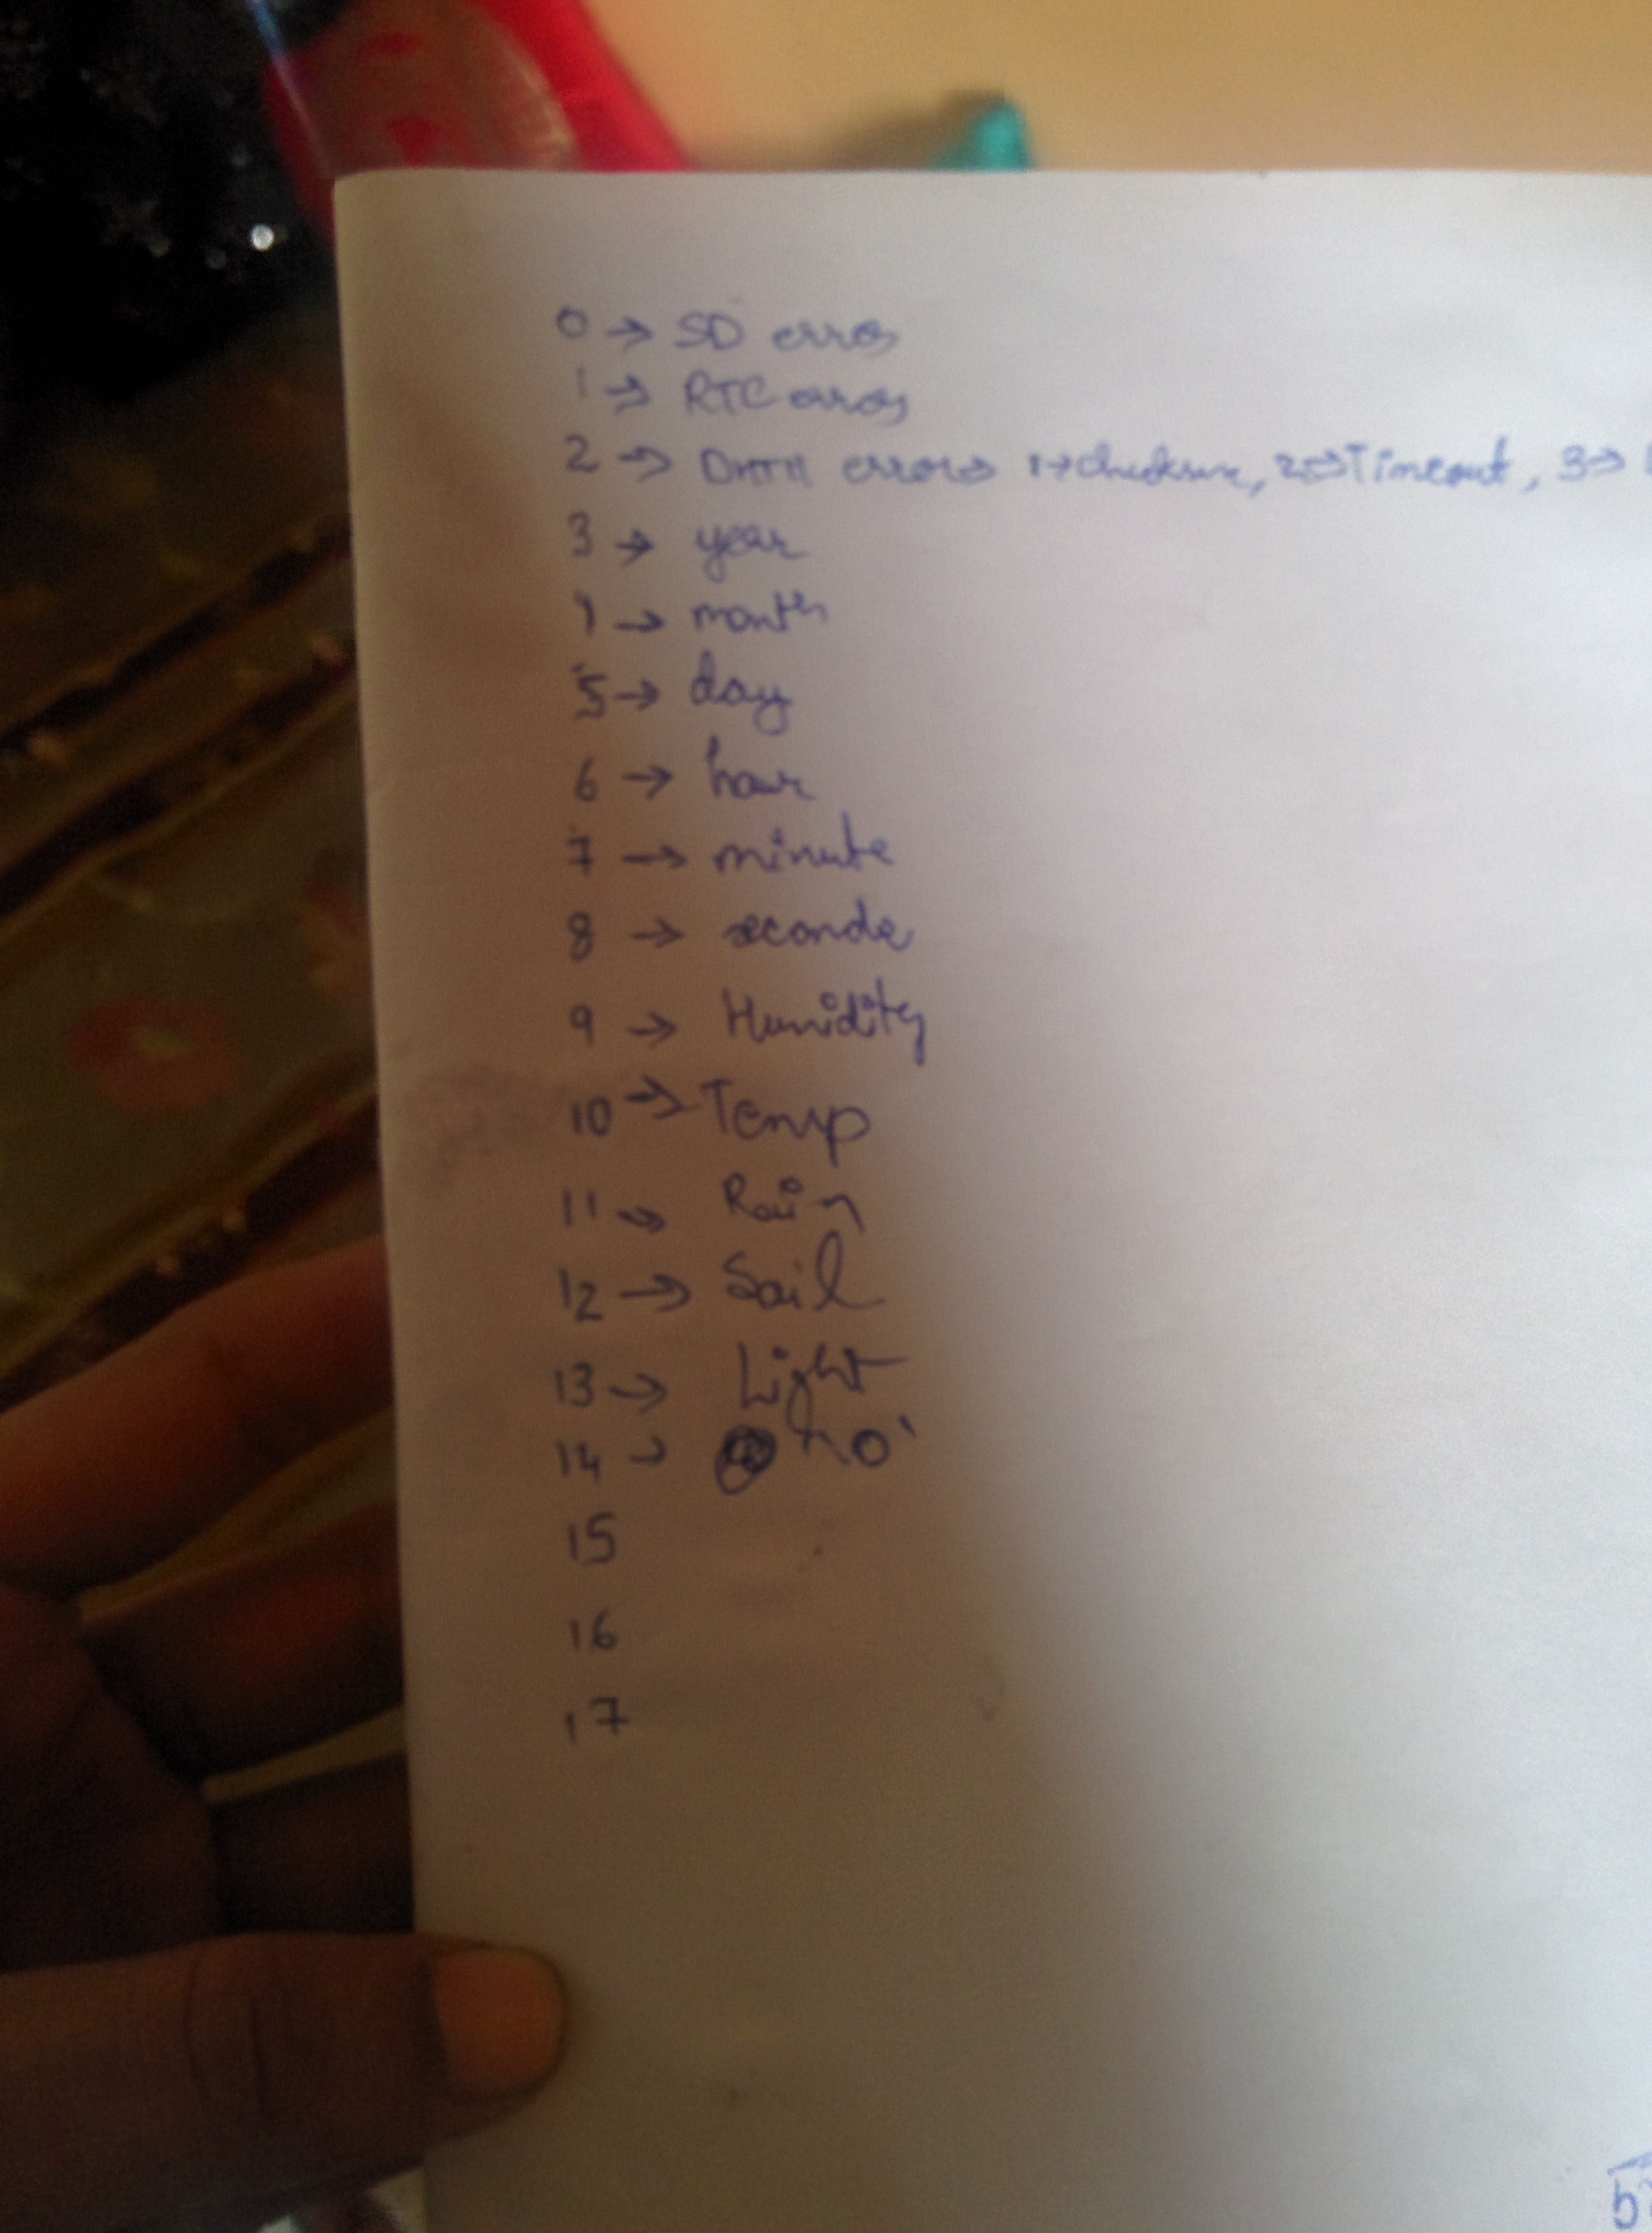 0 → SD error
1 → RTC error
2 → DHT11 error → 1 → checksum, 2 → Timeout, 3 →
3 → year
4 → month
5 → day
6 → hour
7 → minute
8 → seconde
9 → Humidity
10 → Temp
11 → Rain
12 → Soil
13 → Light
14 →
15
16
17